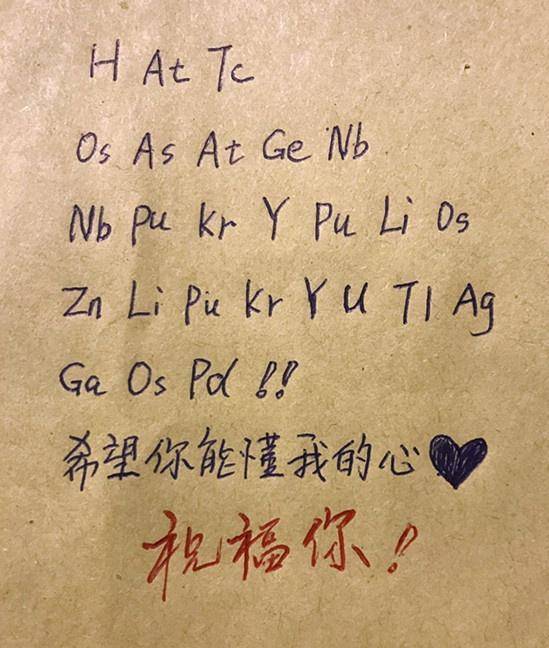 H At Tc
Os As At Ge Nb
Nb Pu Kr Y Pu Li Os
Zn Li Pu Kr Y U Tl Ag
Ga Os Pd !!
希望你能懂我的心♥
祝福你！